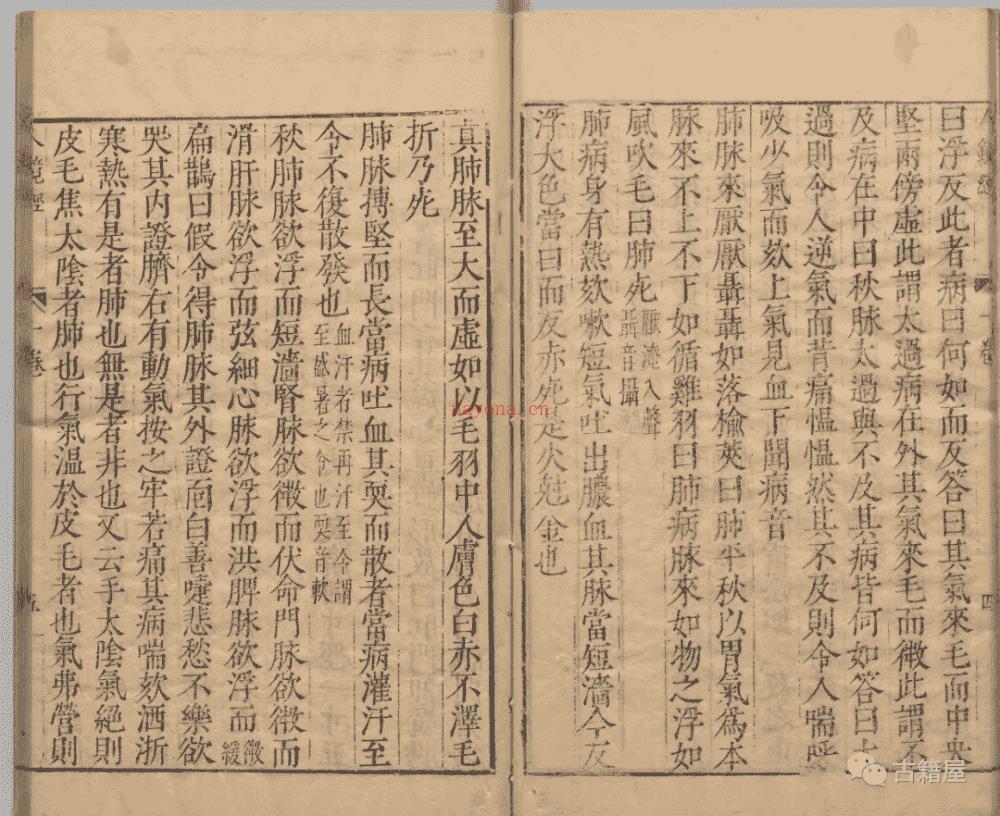 曰浮反此者病曰何如而反答曰其氣來毛而中央
堅兩傍虛此謂太過病在外其氣來毛而微此謂不
及病在中曰秋脉太過與不及其病皆何如答曰太
過則令人逆氣而背痛慍慍然其不及則令人喘呼
吸少氣而欬上氣見血下聞病音
肺脉來厭厭聶聶如落榆莢曰肺平秋以胃氣爲本
脉來不上不下如循雞羽曰肺病脉來如物之浮如
風吹毛曰肺死
厭淹入聲
聶音攝
肺病身有熱欬嗽短氣吐出膿血其脉當短濇今反
浮大色當白而反赤死是火尅金也
卷
四
真肺脉至大而虛如以毛羽中人膚色白赤不澤毛
折乃死
肺脉搏堅而長當病吐血其耎而散者當病灌汗至
令不復散發也
血汗者禁再汗至令謂
至盛暑之令也耎音軟
秋肺脉欲浮而短濇腎脉欲微而伏命門脉欲微而
滑肝脉欲浮而弦細心脉欲浮而洪脾脉欲浮而
微
緩
扁鵲曰假令得肺脉其外證面白善嚏悲愁不樂欲
哭其内證臍右有動氣按之牢若痛其病喘欬洒淅
寒熱有是者肺也無是者非也又云手太陰氣絕則
皮毛焦太陰者肺也行氣溫於皮毛者也氣弗營則
人鏡經
卷
五
nayona.cn
古籍屋